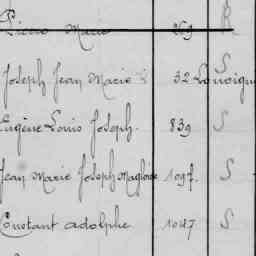 Pierre Marie 269 R
Joseph Jean Marie 32 S
Eugène Louis Joseph. 839 S
Jean Marie Joseph Magloire 1097. S
Constant Adolphe 1047 S